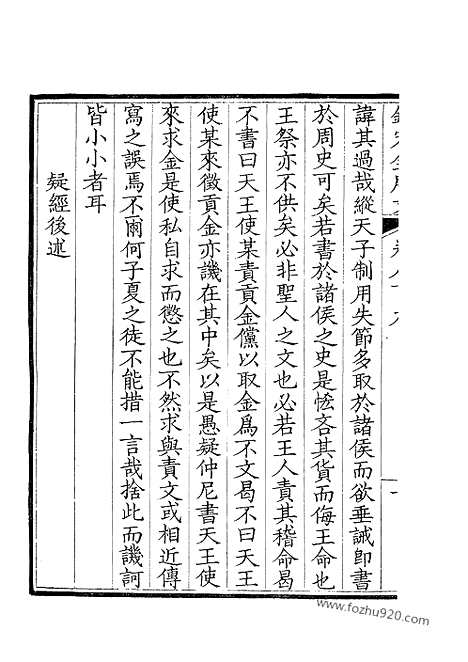 諱其過哉縱天子制用失節多取於諸侯而欲垂誡卽書
於周史可矣若書於諸侯之史是恡吝其貨而侮王命也
王祭亦不供矣必非聖人之文也必若王人責其稽命曷
不書曰天王使某責貢金儻以取金爲不文曷不曰天王
使某來徵貢金亦譏在其中矣以是愚疑仲尼書天王使
來求金是使私自求而懲之也不然求與責文或相近傳
寫之誤焉不爾何子夏之徒不能措一言哉捨此而譏訶
皆小小者耳
疑經後述
www.fozhu920.com